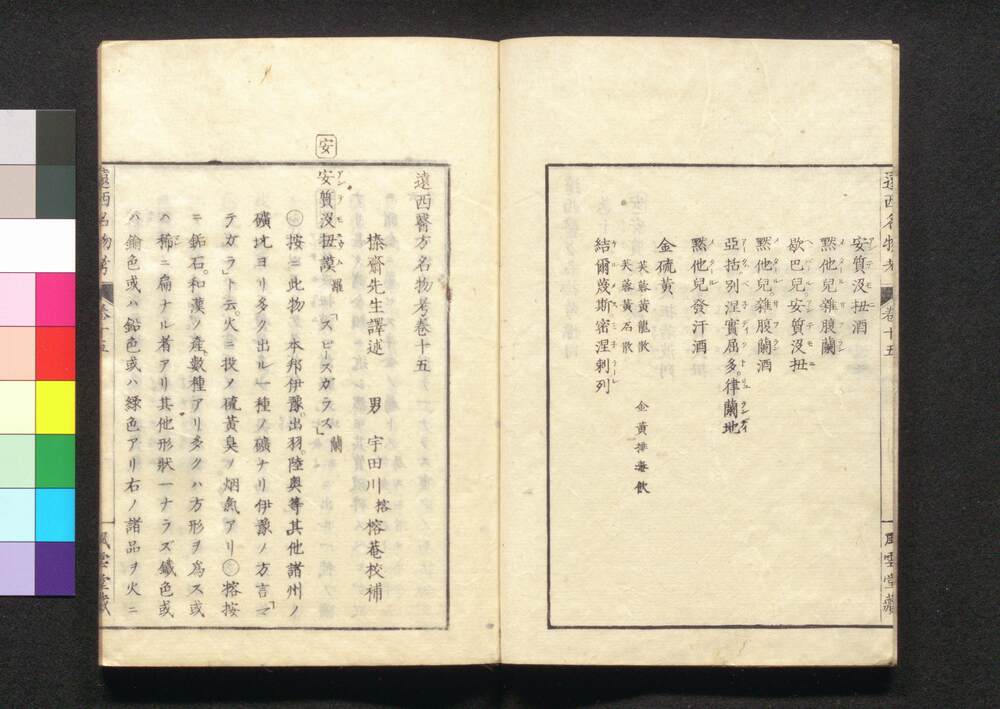 遠西名物考 巻十五 風雲堂蔵
安質没扭酒
黙他兒雜腹蘭
歇巴兒安質没扭
黙他兒雜腹蘭酒
亞括別涅實屈多。律蘭地
黙他兒發汗酒
金硫黄
芙蓉黄龍散 金黄排毒飲
芙蓉黄石散
結爾蔑斯密涅剌列
遠西醫方名物考巻十五
榛齋先生譯述 男 宇田川榕 榕菴校補
安
安質没扭謨 羅 「スピースガラス」 蘭
按ニ此物 本邦伊豫。出羽。陸奥等其他諸州ノ
礦坑ヨリ多ク出ル一種ノ礦ナリ伊豫ノ方言「マ
テガラ」ト云。火ニ投メ硫黄臭ノ烟氣アリ 榕按
ニ鉱石。和漢ノ産數種アリ多クハ方形ヲ爲ス或
ハ稀ニ扁ナル者アリ其他形狀一ナラズ鐵色或
ハ鍮色或ハ鉛色或ハ緑色アリ右ノ諸品ヲ火ニ
遠西名物考 巻十五 風雲堂蔵